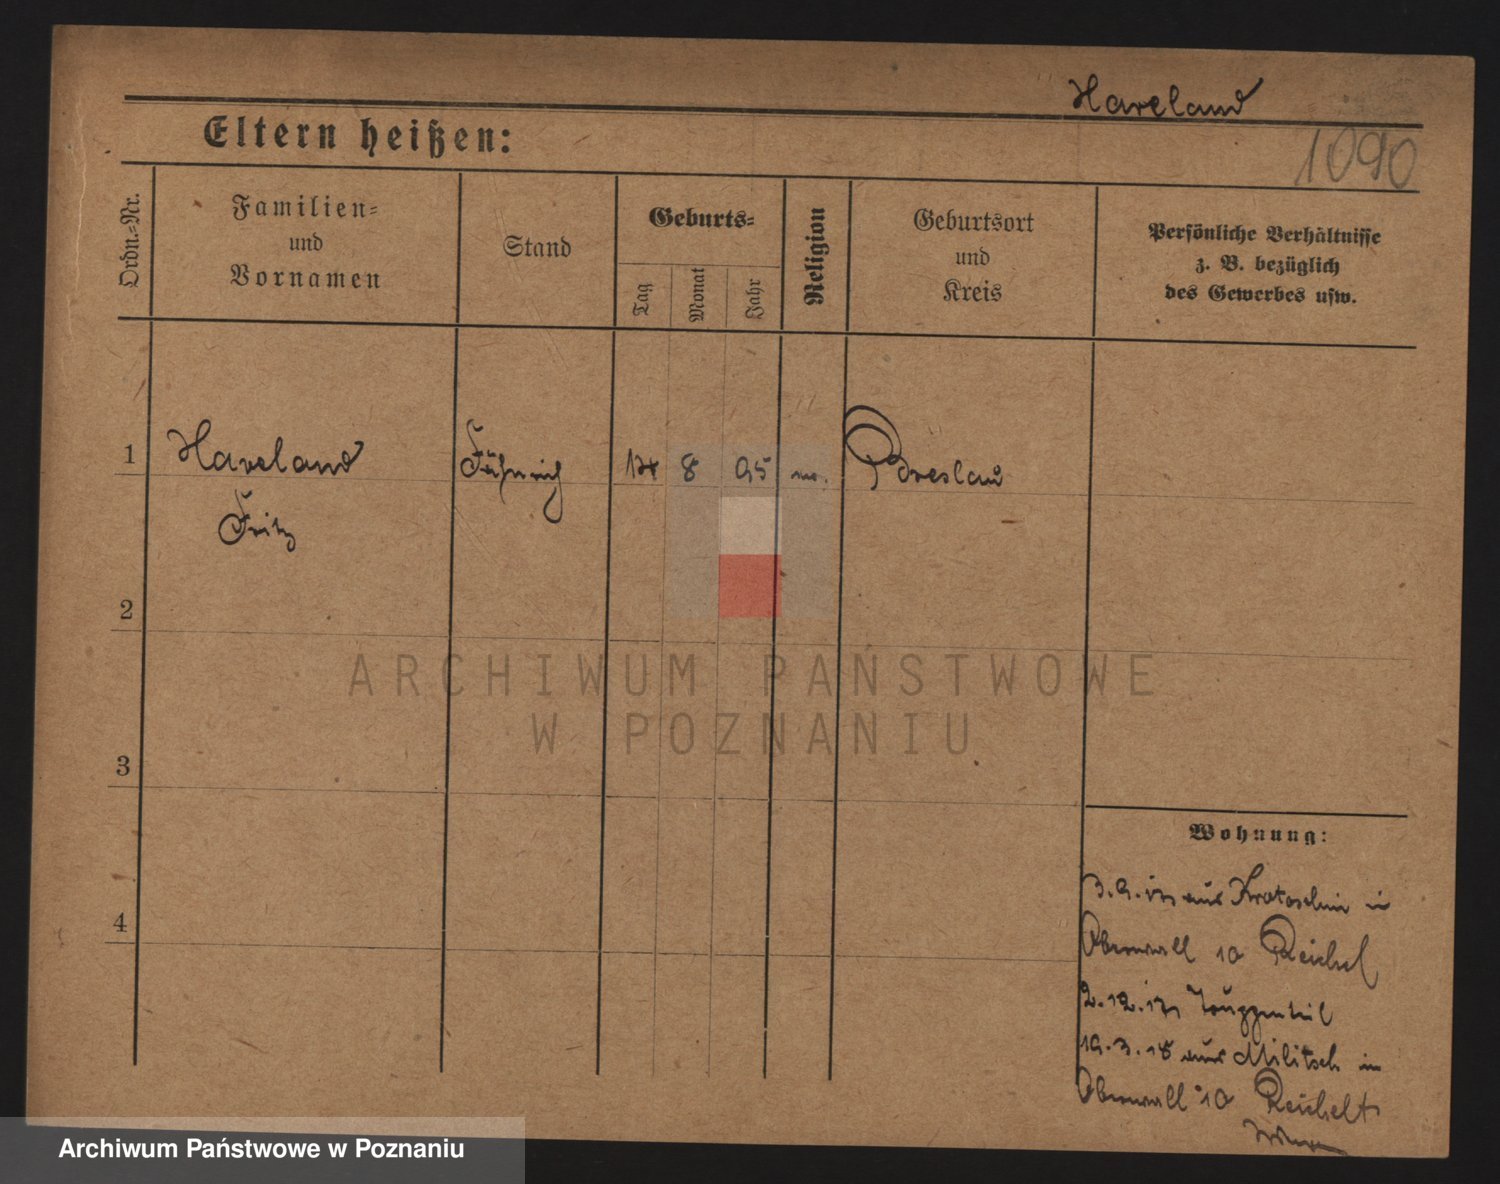 Haveland
1090
Eltern heißen:
Ordn.=Nr.
Familien=
und
Vornamen
Stand
Geburts=
Tag
Monat
Jahr
Religion
Geburtsort
und
Kreis
Persönliche Verhältnisse
z. B. bezüglich
des Gewerbes usw.
1
Haveland
Fritz
Fähnrich
8
95
Breslau
2
3
4
Wohnung:
3.9.17 aus Krotoschin in
10 Reichel
2.12.17 Truppenteil
19.3.18 aus Militsch in
10 Reichelt
ARCHIWUM PAŃSTWOWE
W POZNANIU
Archiwum Państwowe w Poznaniu